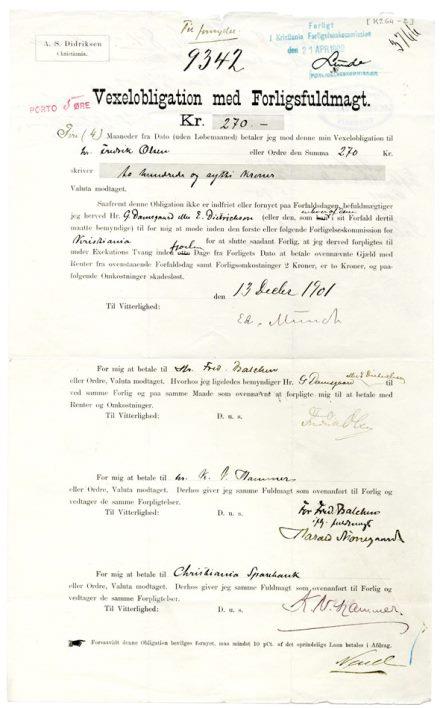 [K264-2]
A. S. Didriksen
Christiania.
Til fornyelse
9342
Forligt
i Kristiania Forligelseskommission
den 21 APR. 1902
FORLIGELSESKOMMISSION
Vexelobligation med Forligsfuldmagt.
PORTO 5 ØRE
Kr. 270 –
Fire (4) Maaneder fra Dato (uden Løbemaaned) betaler jeg mod denne min Vexelobligation til
hr. Fredrik Olsen eller Ordre den Summa 270 Kr.
skriver to hundrede og sytti Kroner
Valuta modtaget.
Saafremt denne Obligation ikke er indfriet eller fornyet paa Forfaldsdagen, befuldmægtiger
jeg herved Hr. G Damsgaard eller E. Didrickson (eller den, som enhver af dem i sit Forfald dertil
maatte bemyndige) til for mig at møde inden den første eller følgende Forligelseskommission for
Kristiania for at slutte saadant Forlig, at jeg derved forpligtes til
under Exekutions Tvang inden fjorten Dage fra Forligets Dato at betale ovennævnte Gjeld med
Renter fra ovenstaaende Forfaldsdag samt Forligsomkostninger 2 Kroner, er to Kroner, og paa-
følgende Omkostninger skadesløst.
den 13 Decbr 1901
Til Vitterlighed:
Ed. Munch
For mig at betale til Hr. Fred. Balchen
eller Ordre, Valuta modtaget. Hvorhos jeg ligeledes bemyndiger Hr. G Damsgaard til
ved samme Forlig og paa samme Maade som ovennævnt at forpligte mig til at betale med
Renter og Omkostninger.
Til Vitterlighed: D. u. s.
Fredrik Olsen
For mig at betale til hr. K. V. Hammer
eller Ordre, Valuta modtaget. Derhos giver jeg samme Fuldmagt som ovenanført til Forlig og
vedtager de samme Forpligtelser.
Til Vitterlighed: D. u. s.
For Fred. Balchen
fuldmagt
Harald Nørregaard
For mig at betale til Christiania Sparebank
eller Ordre, Valuta modtaget. Derhos giver jeg samme Fuldmagt som ovenanført til Forlig og
vedtager de samme Forpligtelser.
Til Vitterlighed: D. u. s.
K. V. Hammer
Forsaavidt denne Obligation bevilges fornyet, maa mindst 10 pCt. af det oprindelige Laan betales i Afdrag.